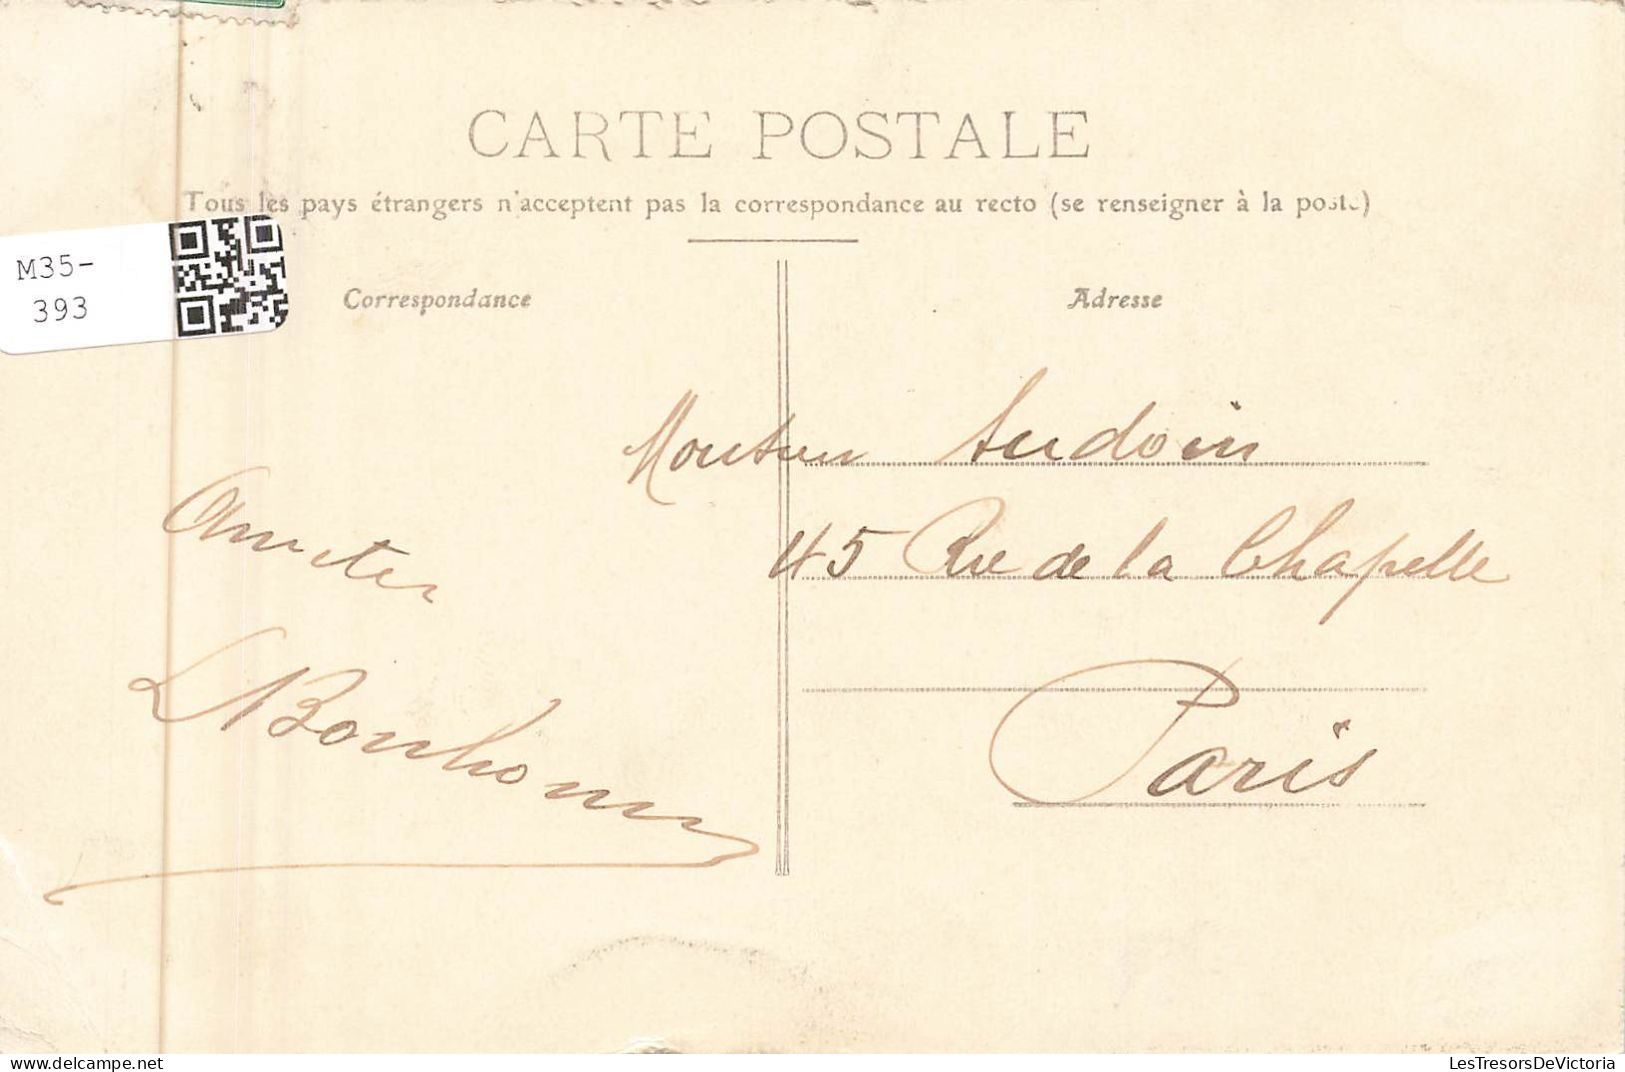 CARTE POSTALE
Tous les pays étrangers n'acceptent pas la correspondance au recto (se renseigner à la poste)
M35-
393
Correspondance
Adresse
Audoin
45 Rue de la Chapelle
Paris
L Bonhomme
delcampe.net
LesTresorsDeVictoria